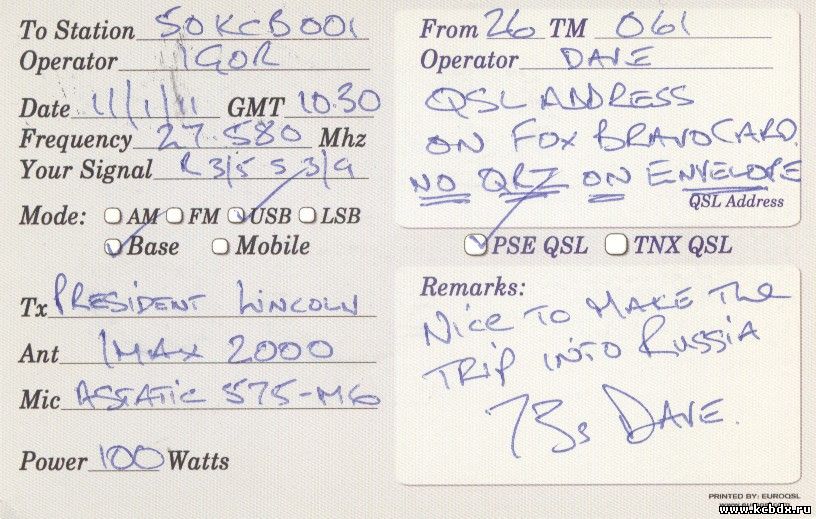 To Station 50KCB001
Operator IGOR
Date 11/1/11 GMT 10.30
Frequency 27.580 Mhz
Your Signal R 3/5 S 3/9
Mode: AM FM USB LSB
Base Mobile
Tx PRESIDENT LINCOLN
Ant IMAX 2000
Mic ASTATIC 575-M6
Power 100 Watts
From 26 TM 061
Operator DAVE
QSL ADDRESS
ON FOX BRAVO CARD.
NO QRZ ON ENVELOPE
QSL Address
PSE QSL TNX QSL
Remarks:
NICE TO MAKE THE
TRIP INTO RUSSIA
73s DAVE.
PRINTED BY: EUROQSL
www.kcbdx.ru